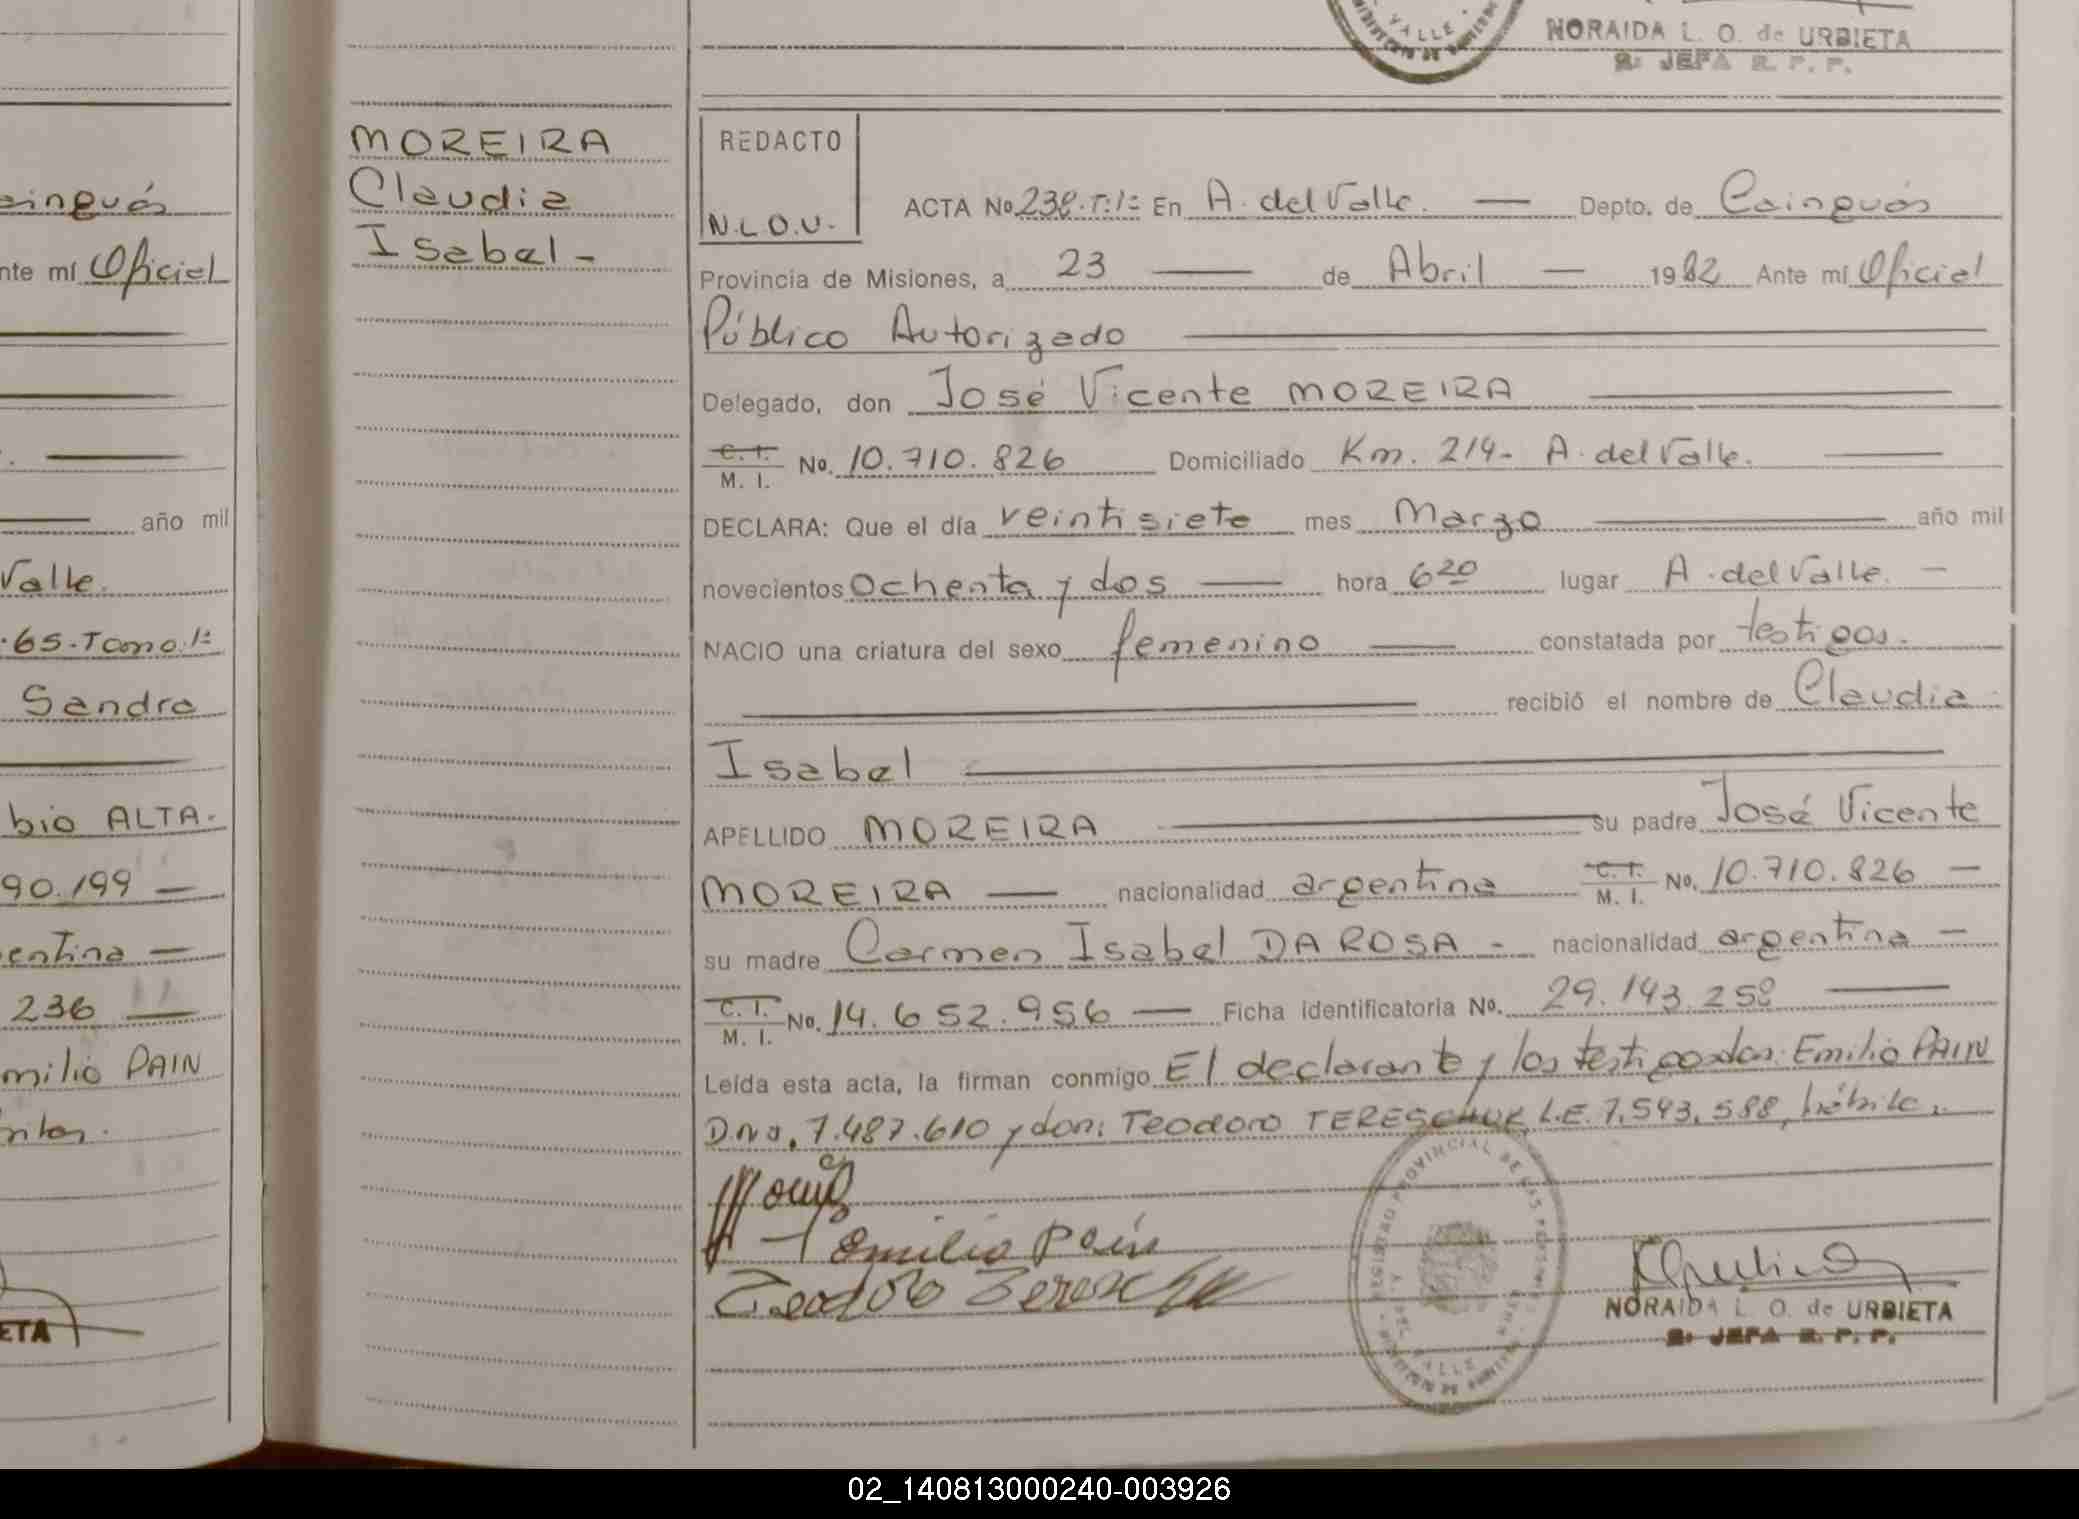 NORAIDA L. O. de URBIETA
2: JEFA R. P. P.
VALLE
MOREIRA
Claudia
Isabel -
REDACTO
N.L.O.U.
ACTA No 238.T:1º En A. del Valle. — Depto. de Cainguás
Provincia de Misiones, a 23 — de Abril — 1982 Ante mí Oficial
Público Autorizado
Delegado, don José Vicente MOREIRA
C. I. M. I. No. 10.710.826 Domiciliado Km. 214- A. del Valle.
DECLARA: Que el día veintisiete mes Marzo año mil
novecientos ochenta y dos — hora 6 20 lugar A. del Valle. —
NACIO una criatura del sexo femenino — constatada por testigos.
recibió el nombre de Claudia
Isabel
APELLIDO MOREIRA su padre José Vicente
MOREIRA — nacionalidad argentina C. I. M. I. No. 10.710.826 —
su madre Carmen Isabel DA ROSA - nacionalidad argentina —
C. I. M. I. No. 14.652.956 — Ficha identificatoria No. 29.143.258
Leída esta acta, la firman conmigo El declarante y los testigos don: Emilio PAIN
D.N.I. 7.487.610 y don: Teodoro TERESCHUK L.E. 7.543.588, hábiles.
Emilio Pain
Teodoro
NORAIDA L. O. de URBIETA
2: JEFA R. P. P.
ainguás
nte mí Oficial
año mil
Valle.
.65.Tomo 1º
Sandra
bio ALTA.
90.199 —
entina —
236 —
milio PAIN
ETA
02_140813000240-003926